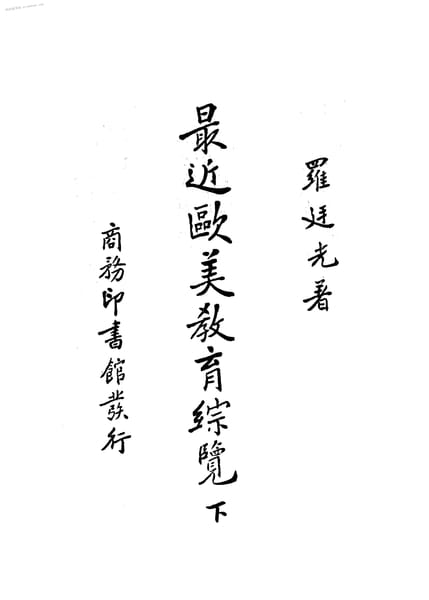 羅廷光著
最近歐美教育綜覽 下
商務印書館發行